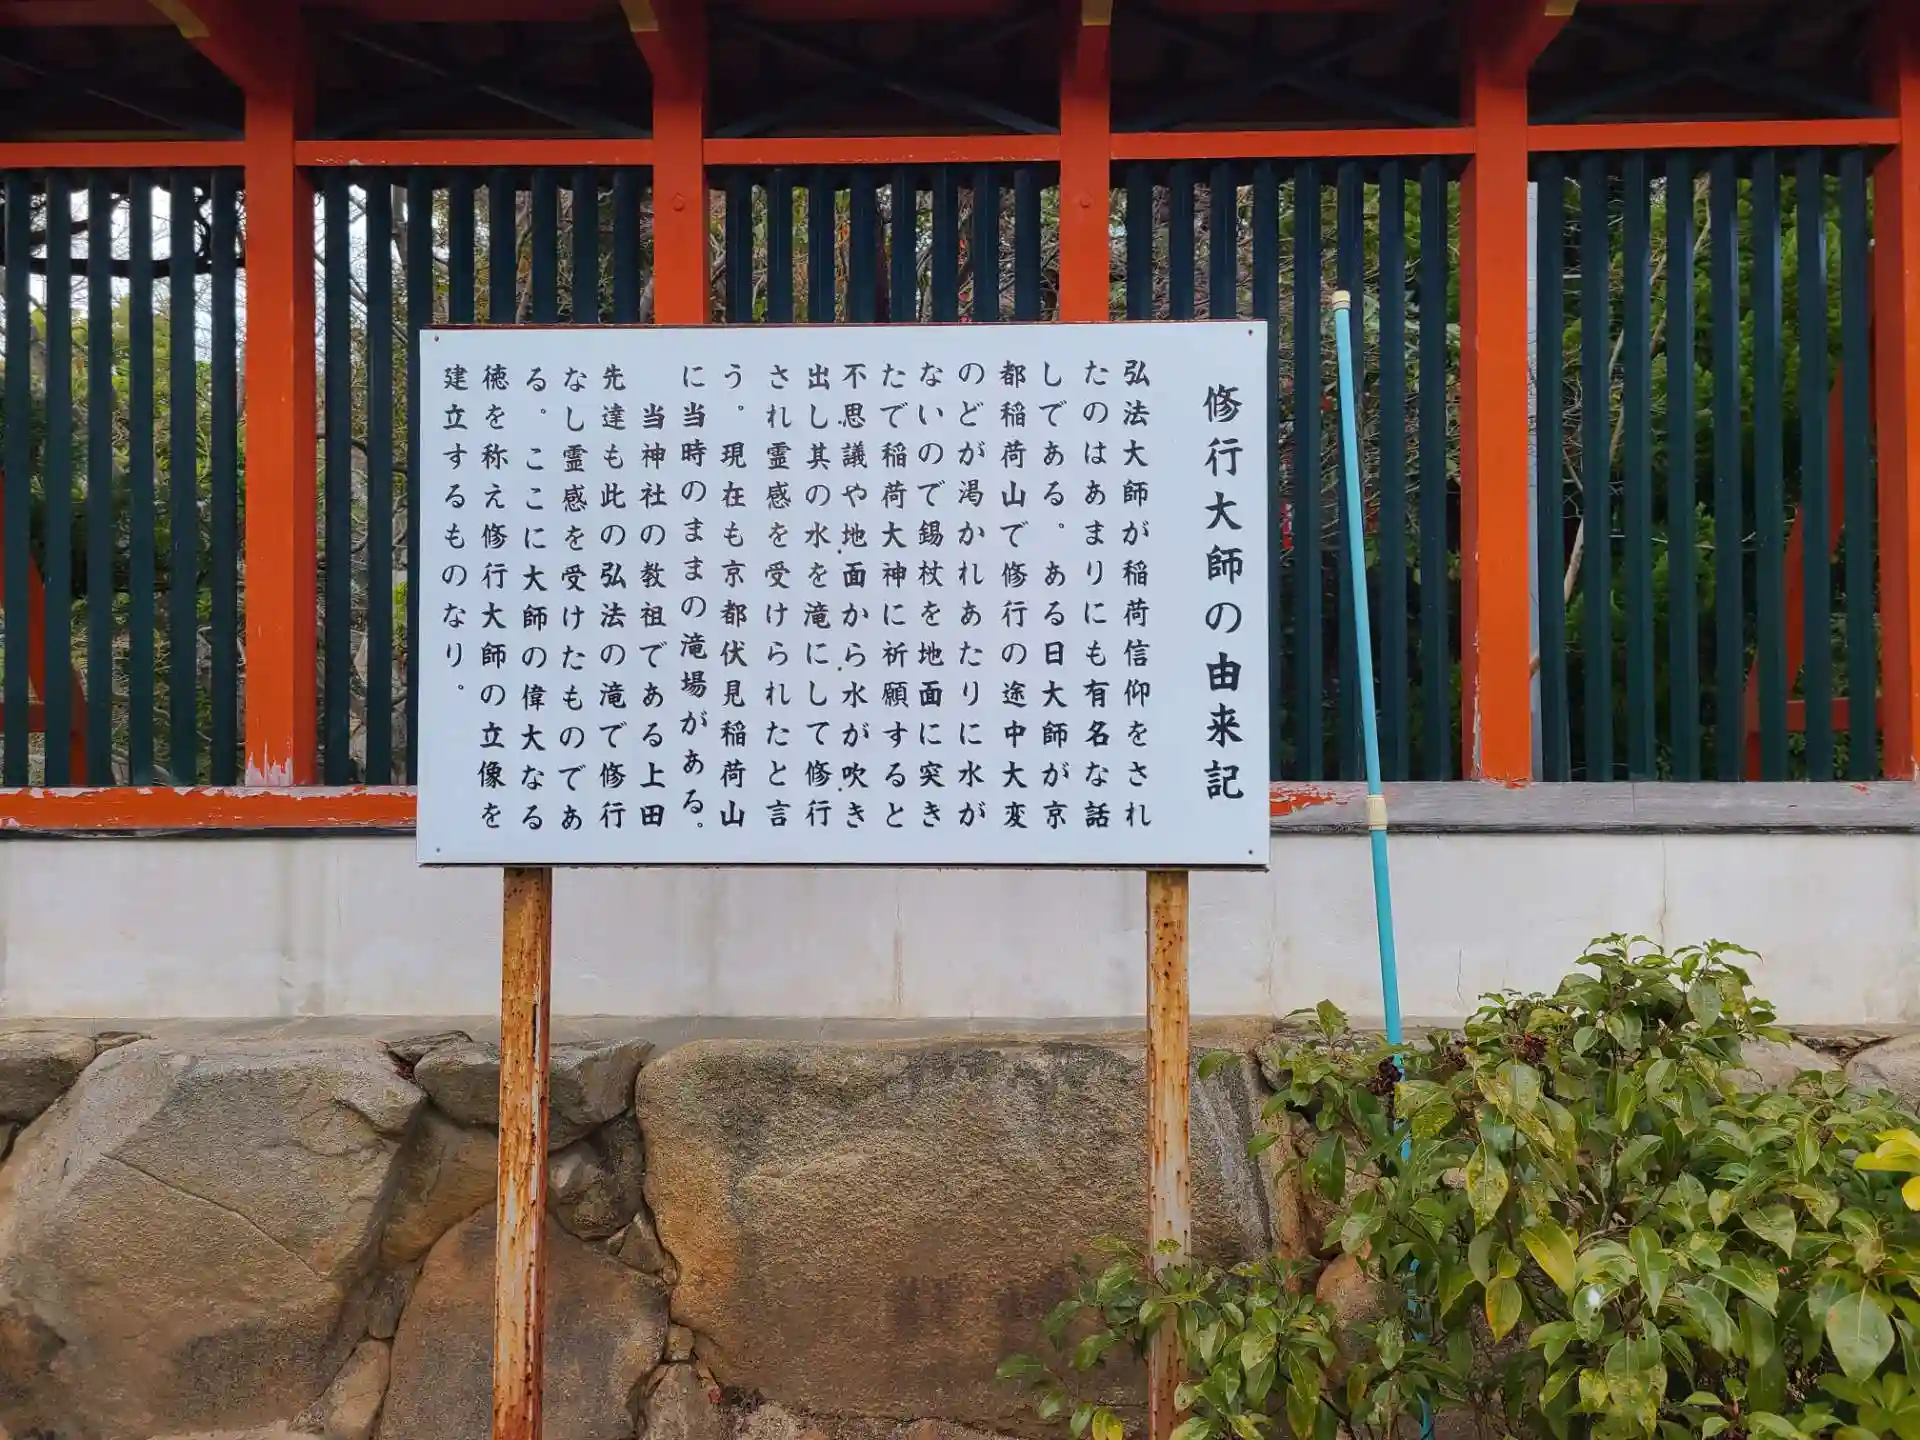 修行大師の由来記
弘法大師が稲荷信仰をされ
たのはあまりにも有名な話
しである。ある日大師が京
都稲荷山で修行の途中大変
のどが渇かれあたりに水が
ないので錫杖を地面に突き
たて稲荷大神に祈願すると
不思議や地面から水が吹き
出し其の水を滝にして修行
され霊感を受けられたと言
う。現在も京都伏見稲荷山
に当時のままの滝場がある。
当神社の教祖である上田
先達も此の弘法の滝で修行
なし霊感を受けたものであ
る。ここに大師の偉大なる
徳を称え修行大師の立像を
建立するものなり。